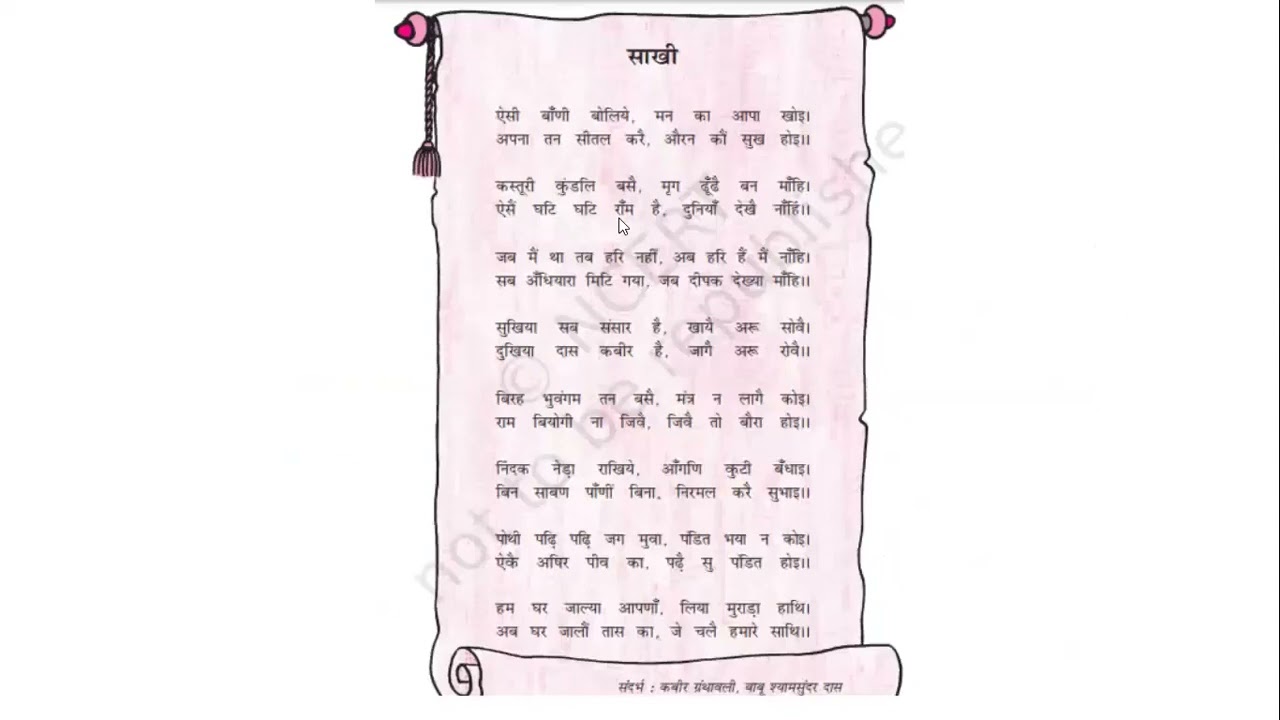 साखी
ऐसी बाँणी बोलिये, मन का आपा खोइ।
अपना तन सीतल करै, औरन कौं सुख होइ।।
कस्तूरी कुंडलि बसै, मृग ढूँढै बन माँहि।
ऐसैं घटि घटि राँम है, दुनियाँ देखै नाँहिं।।
जब मैं था तब हरि नहीं, अब हरि हैं मैं नाँहि।
सब अँधियारा मिटि गया, जब दीपक देख्या माँहि।।
सुखिया सब संसार है, खायै अरू सोवै।
दुखिया दास कबीर है, जागै अरू रोवै।।
बिरह भुवंगम तन बसै, मंत्र न लागै कोइ।
राम बियोगी ना जिवै, जिवै तो बौरा होइ।।
निंदक नेड़ा राखिये, आँगणि कुटी बँधाइ।
बिन साबण पाँणीं बिना, निरमल करै सुभाइ।।
पोथी पढ़ि पढ़ि जग मुवा, पंडित भया न कोइ।
ऐकै अषिर पीव का, पढ़ै सु पंडित होइ।।
हम घर जाल्या आपणाँ, लिया मुराड़ा हाथि।
अब घर जालौं तास का, जे चलै हमारे साथि।।
संदर्भ : कबीर ग्रंथावली, बाबू श्यामसुंदर दास
© NCERT
not to be republishe